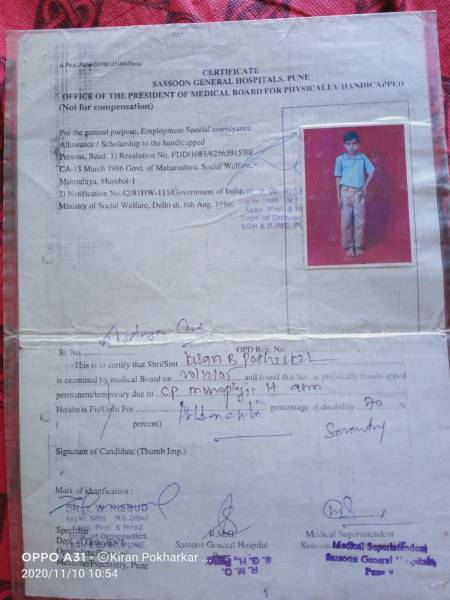 CERTIFICATE
SASSOON GENERAL HOSPITALS, PUNE
OFFICE OF THE PRESIDENT OF MEDICAL BOARD FOR PHYSICALLY HANDICAPPED
(Not for compensation)
For the general purpose, Employment Special conveyance
Allowance / Scholarship to the handicapped
Persons, Read. 1) Resolution No. FDD/1081/6256591570/
CA-13 March 1986 Govt. of Maharashtra, Social Welfare,
Mantralaya, Mumbai-1
2) Notification No.42/81HW-111/Government of India
Ministry of Social Welfare, Delhi dt. 6th Aug. 1986.
DR. Y. W. RISB
Asso. Prof. & H
Dept. of Orthope
SGH & BJMC, PU
Sr. No. OPD Reg. No.
This is to certify that Shri/Smt Kiran B
is examined by medical Board on 20/12/05 and found that he is physically handicapped
permanent/temporary due to CP
He/she is Fit/Unfit For percentage of disability 70
( percent) Seventy
Signature of Candidate (Thumb Imp.)
Mark of identfication :
DR. Y. W. RISBUD
Asso. Prof. & Head
Dept. of Orthopedics
BJMC, PUNE.
Specialist
R.M.O. Medical Superintendent
Sassoon General Hospital Sassoon
Medicine/Psychiatry, Pune
R.M.O.
S. G. H., Pune
Medical Superintendent
Sassoon General Hospitals
Pune
OPPO A31 · ©Kiran Pokharkar ...
2020/11/10 10:54